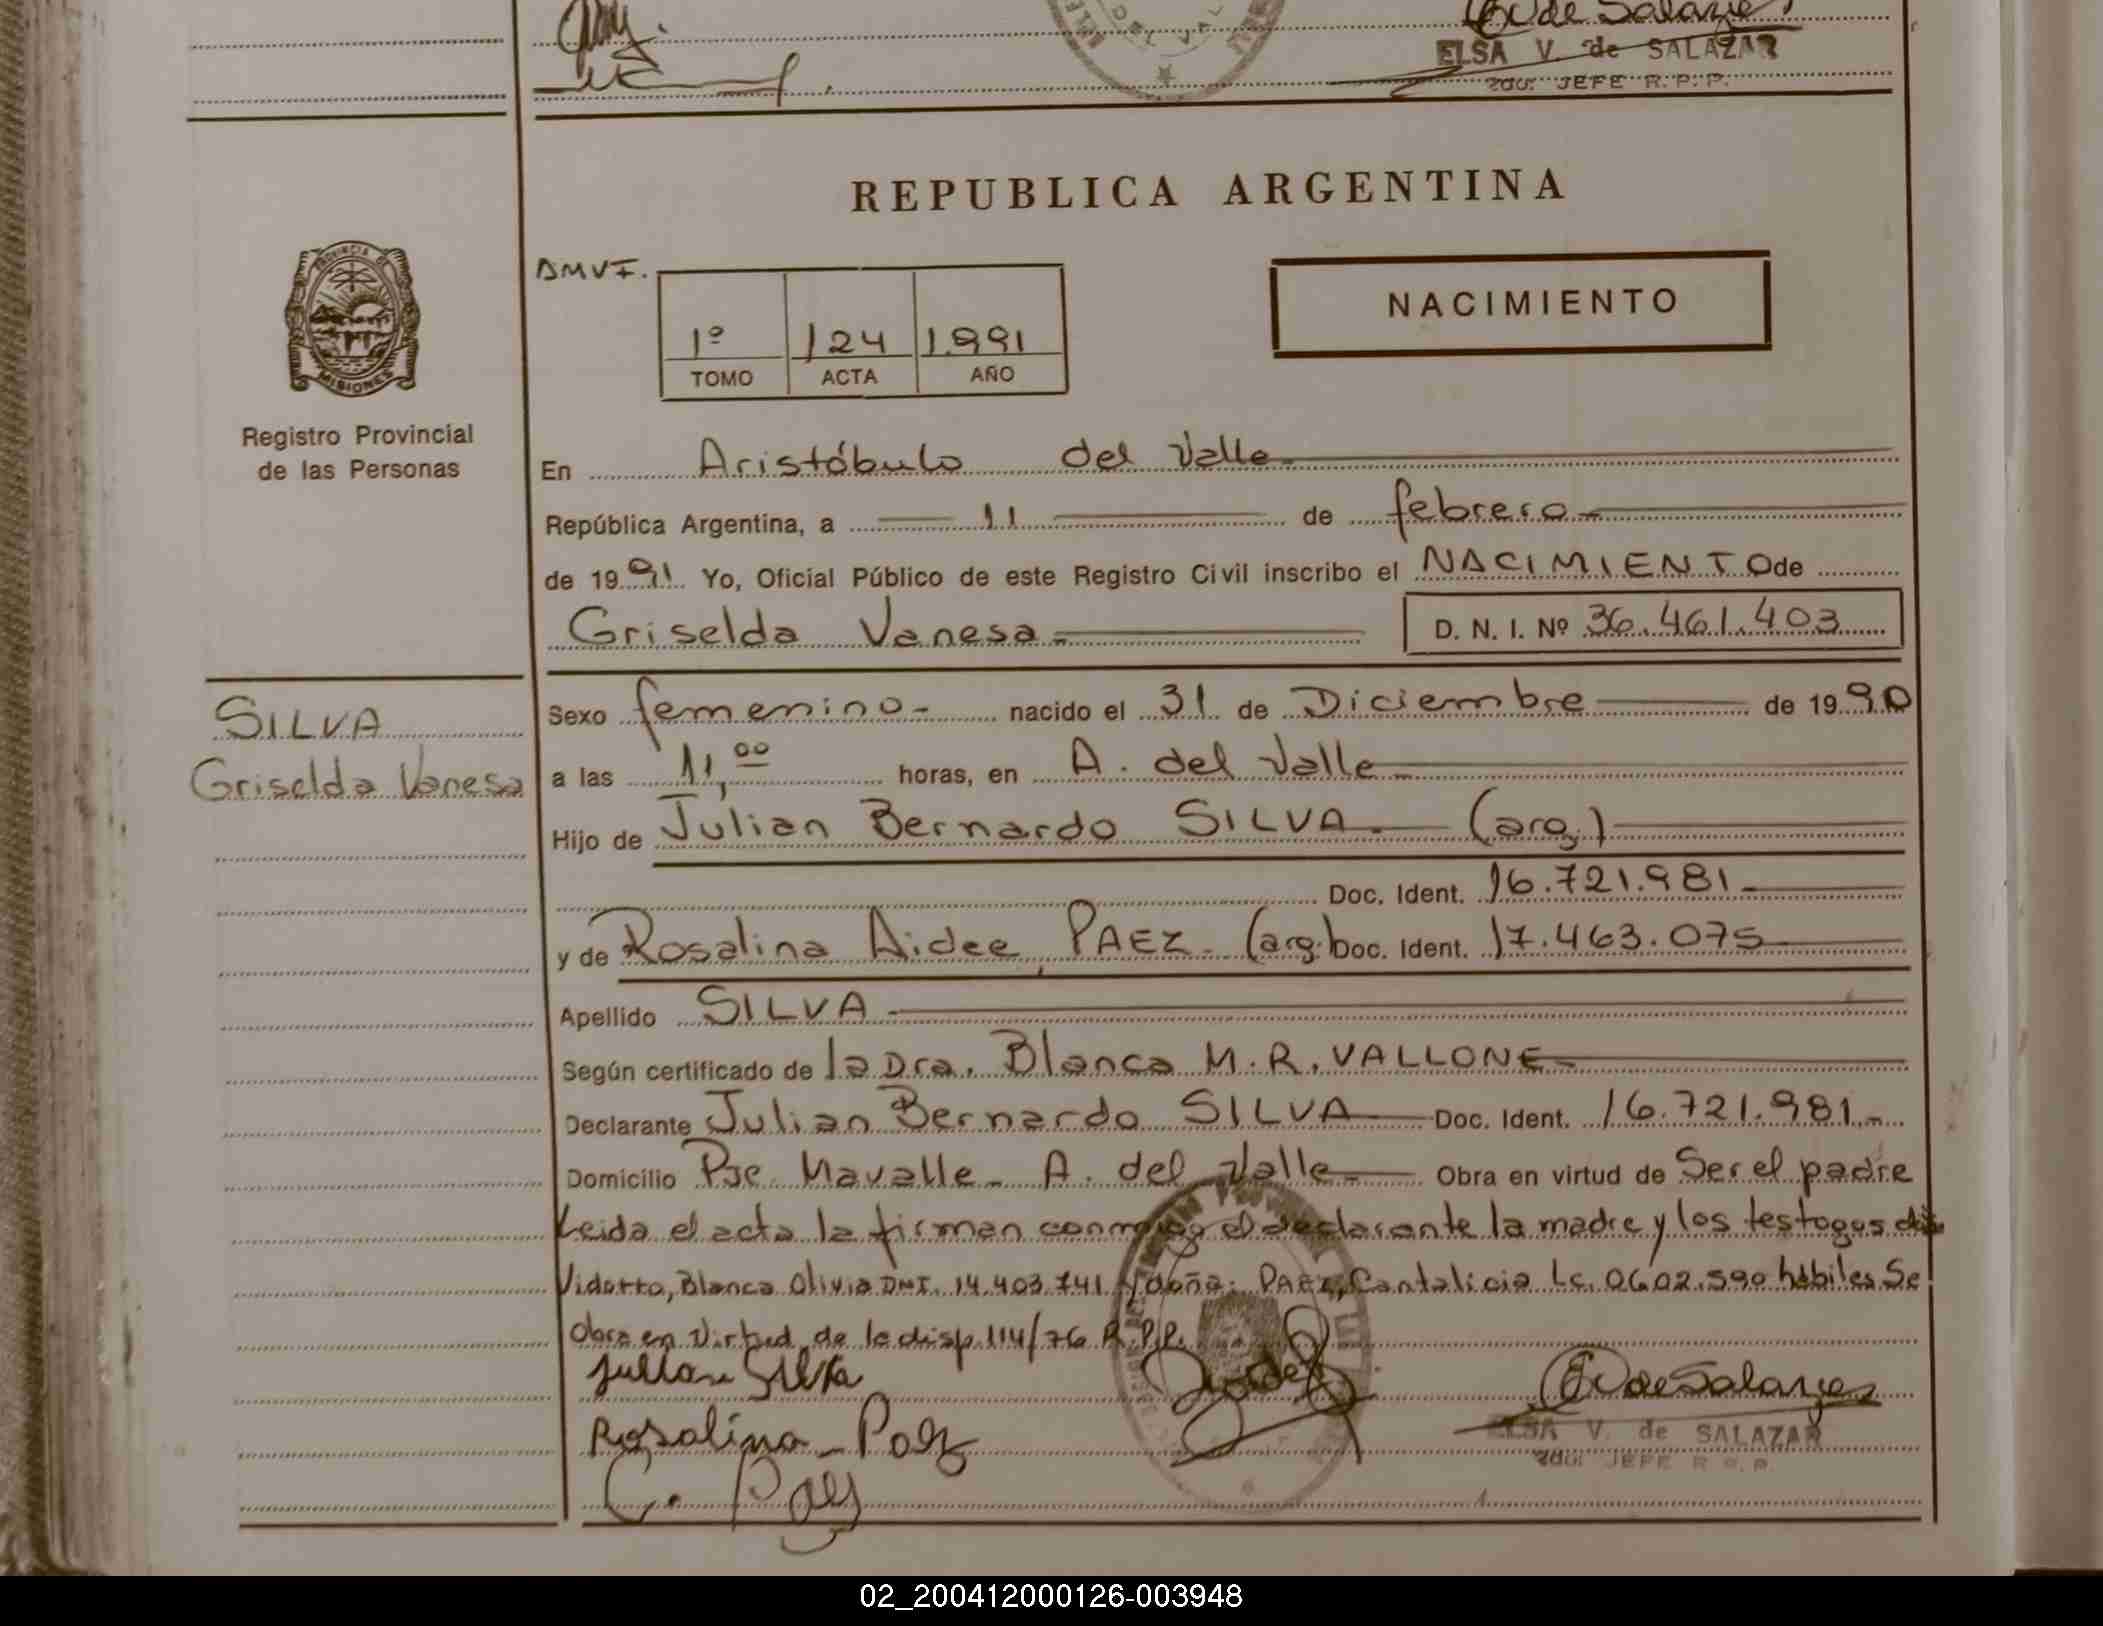 ELSA V. de SALAZAR
2do. JEFE R.P.P.
REPUBLICA ARGENTINA
PROVINCIA DE
MISIONES
DMVF.
1º 124 1.991
TOMO ACTA AÑO
NACIMIENTO
Registro Provincial
de las Personas
En Aristóbulo del Valle
República Argentina, a 11 de febrero
de 1991 Yo, Oficial Público de este Registro Civil inscribo el NACIMIENTO de
Griselda Vanesa
D. N. I. Nº 36.461.403
SILVA
Griselda Vanesa
Sexo femenino - nacido el 31 de Diciembre de 1990
a las 11,00 horas, en A. del Valle
Hijo de Julian Bernardo SILVA (arg.)
Doc. Ident. 16.721.981
y de Rosalina Aidee PAEZ (arg.) Doc. Ident. 17.463.075
Apellido SILVA
Según certificado de la Dra. Blanca M.R. VALLONE
Declarante Julian Bernardo SILVA Doc. Ident. 16.721.981.-
Domicilio Pje Mavalle - A. del Valle Obra en virtud de Ser el padre
Leida el acta la firman conmigo el declarante la madre y los testogos
Vidotto, Blanca Olivia DNI. 14.403.741 y doña: PAEZ, Cantalicia Lc. 0602.590 hábiles. Se
Obra en Virtud de la disp. 114/76 R.P.P.
Julian Silva
Rosalina - Paez
C. Paez
EV de Salazar
ELSA V. de SALAZAR
2do. JEFE R.P.P.
02_200412000126-003948